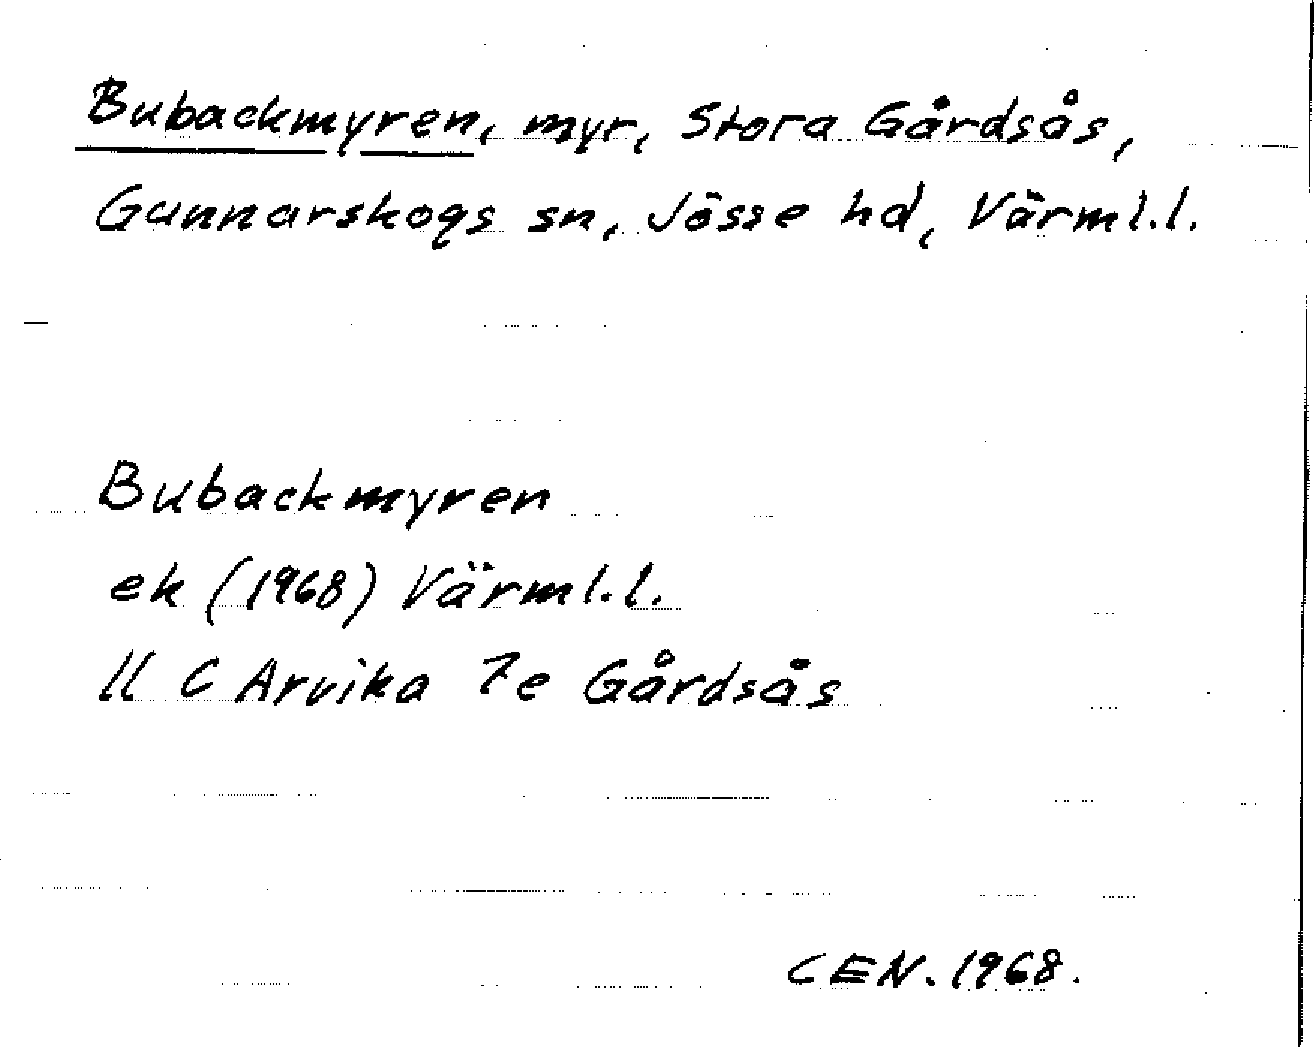 Bubackmyren, myr, Stora Gårdsås,
Gunnarskogs sn, Jösse hd, Värml.l.
Bubackmyren
ek (1968) Värml.l.
11 C Arvika 7e Gårdsås
CEN. 1968.